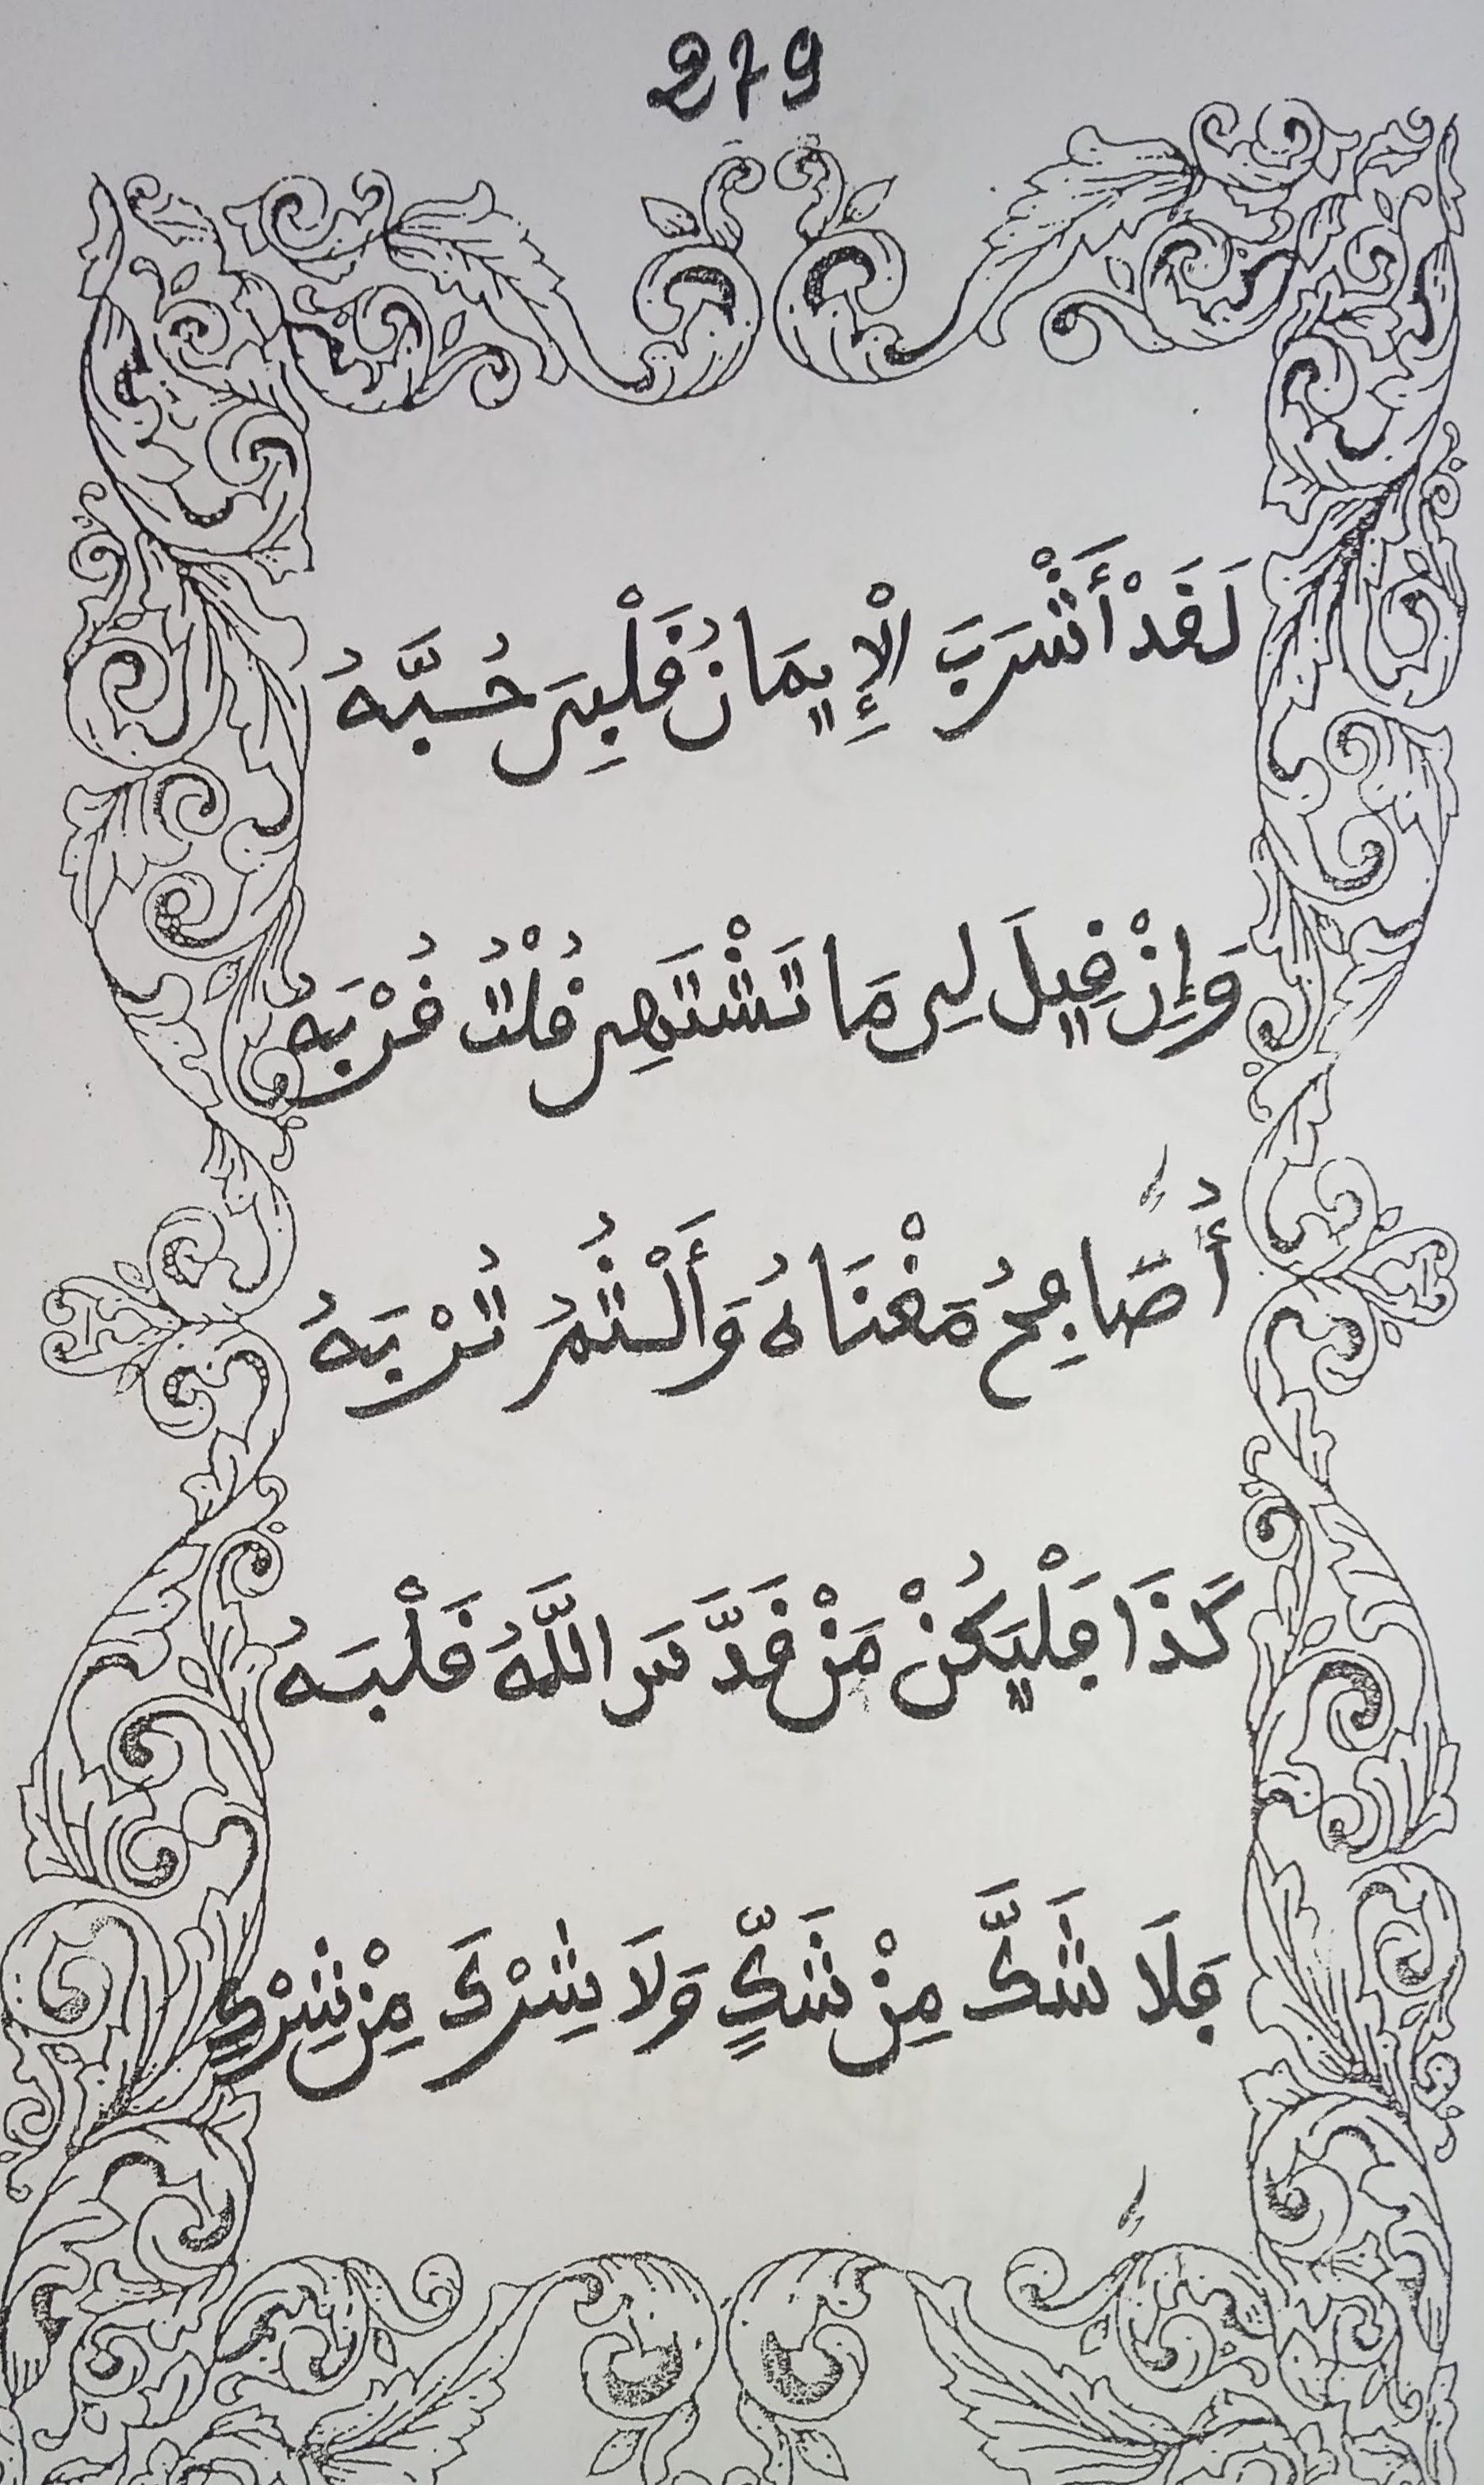 279
لَقَدْ أَشْرَبَ الْإِيمَانُ قَلْبِيَ حُبَّهُ
وَإِنْ قِيلَ لِي مَا تَشْتَهِي قُلْتُ قُرْبَهُ
أُصَافِحُ مَغْنَاهُ وَأَلْثُمُ تُرْبَهُ
كَذَا فَلْيَكُنْ مَنْ قَدَّسَ اللَّهُ قَلْبَهُ
فَلَا شَكَّ مِنْ شَكٍّ وَلَا شِرْكَ مِنْ شِرْكِ